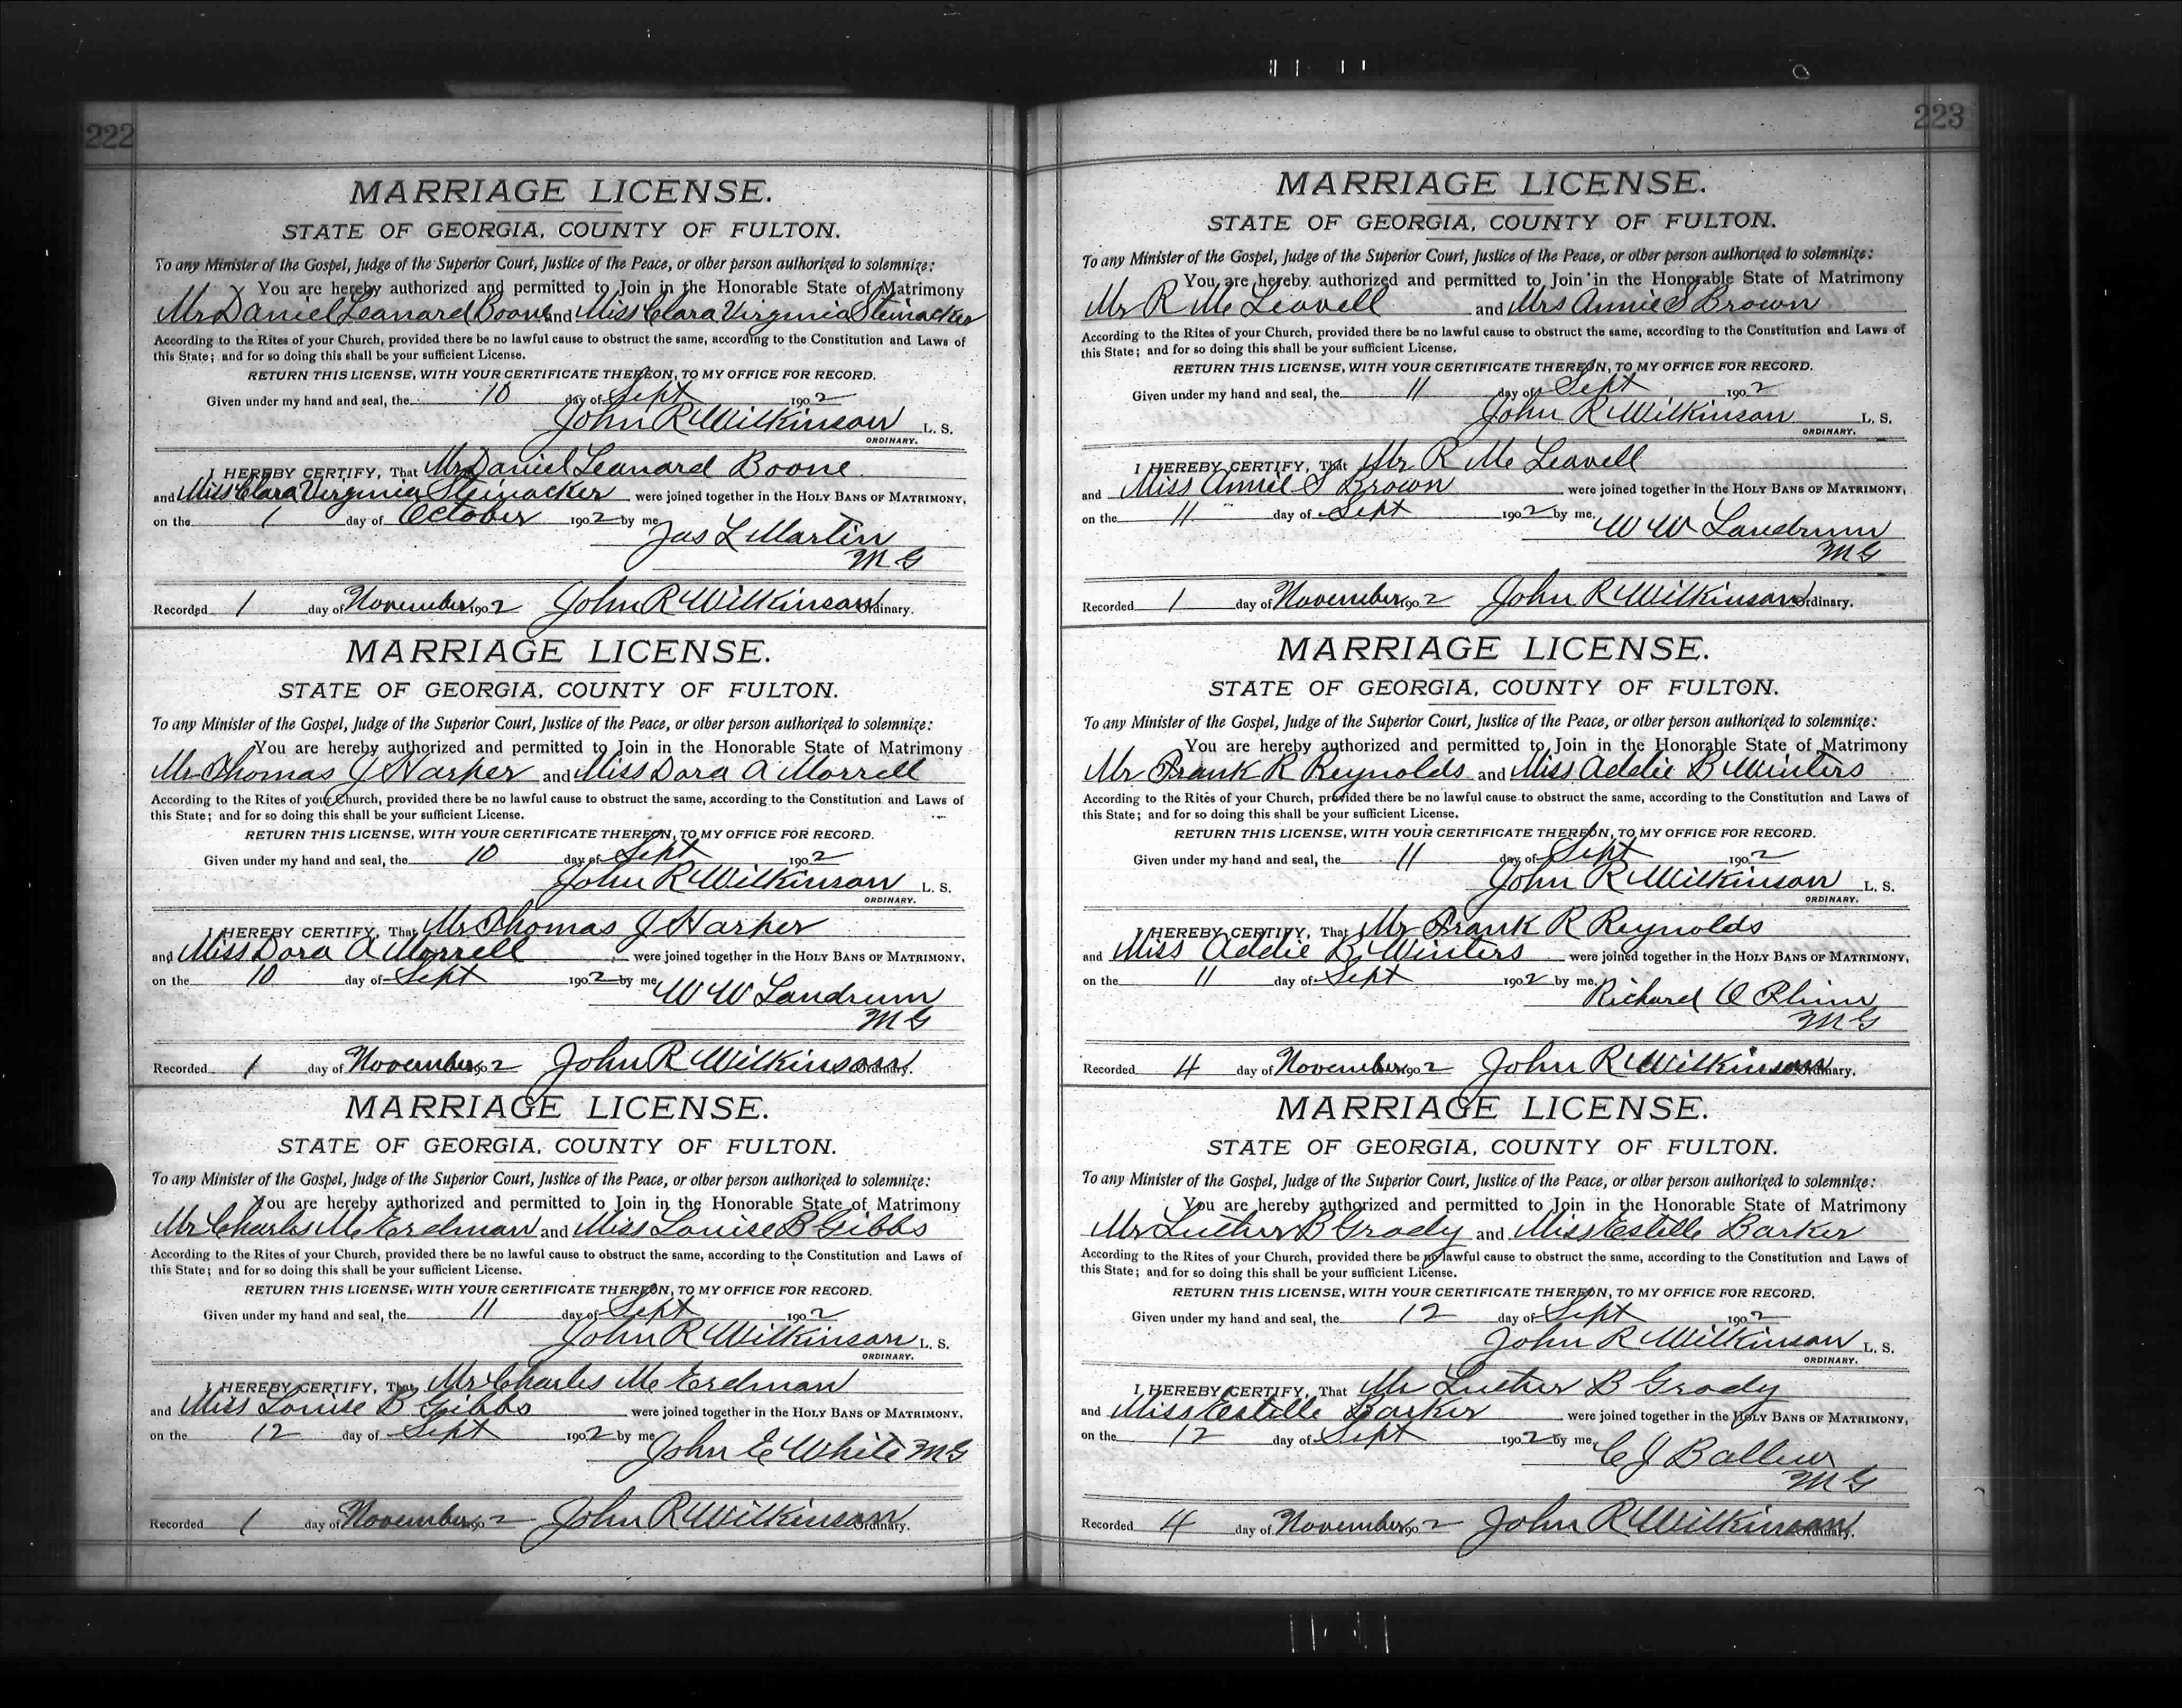 222
MARRIAGE LICENSE.
STATE OF GEORGIA, COUNTY OF FULTON.
To any Minister of the Gospel, Judge of the Superior Court, Justice of the Peace, or other person authorized to solemnize:
You are hereby authorized and permitted to Join in the Honorable State of Matrimony
Mr Daniel Leanard Boone and Miss Clara Virginia Steinacker
According to the Rites of your Church, provided there be no lawful cause to obstruct the same, according to the Constitution and Laws of
this State; and for so doing this shall be your sufficient License.
RETURN THIS LICENSE, WITH YOUR CERTIFICATE THEREON, TO MY OFFICE FOR RECORD.
Given under my hand and seal, the 10 day of Sept 1902
John R Wilkinson L. S.
ORDINARY.
I HEREBY CERTIFY, That Mr Daniel Leanard Boone
and Miss Clara Virginia Steinacker were joined together in the HOLY BANS OF MATRIMONY,
on the 1 day of October 1902 by me,
Jas L Martin
M G
Recorded 1 day of November 1902 John R Wilkinson Ordinary.
MARRIAGE LICENSE.
STATE OF GEORGIA, COUNTY OF FULTON.
To any Minister of the Gospel, Judge of the Superior Court, Justice of the Peace, or other person authorized to solemnize:
You are hereby authorized and permitted to Join in the Honorable State of Matrimony
Mr Thomas J Harper and Miss Dora A Morrell
According to the Rites of your Church, provided there be no lawful cause to obstruct the same, according to the Constitution and Laws of
this State; and for so doing this shall be your sufficient License.
RETURN THIS LICENSE, WITH YOUR CERTIFICATE THEREON, TO MY OFFICE FOR RECORD.
Given under my hand and seal, the 10 day of Sept 1902
John R Wilkinson L. S.
ORDINARY.
I HEREBY CERTIFY, That Mr Thomas J Harper
and Miss Dora A Morrell were joined together in the HOLY BANS OF MATRIMONY,
on the 10 day of Sept 1902 by me
W W Landrum
M G
Recorded 1 day of November 1902 John R Wilkinson Ordinary.
MARRIAGE LICENSE.
STATE OF GEORGIA, COUNTY OF FULTON.
To any Minister of the Gospel, Judge of the Superior Court, Justice of the Peace, or other person authorized to solemnize:
You are hereby authorized and permitted to Join in the Honorable State of Matrimony
Mr Charles M Erdman and Miss Louise B Gibbs
According to the Rites of your Church, provided there be no lawful cause to obstruct the same, according to the Constitution and Laws of
this State; and for so doing this shall be your sufficient License.
RETURN THIS LICENSE, WITH YOUR CERTIFICATE THEREON, TO MY OFFICE FOR RECORD.
Given under my hand and seal, the 11 day of Sept 1902
John R Wilkinson L. S.
ORDINARY.
I HEREBY CERTIFY, That Mr Charles M Erdman
and Miss Louise B Gibbs were joined together in the HOLY BANS OF MATRIMONY,
on the 12 day of Sept 1902 by me
John E White M G
Recorded 1 day of November 1902 John R Wilkinson Ordinary.
223
MARRIAGE LICENSE.
STATE OF GEORGIA, COUNTY OF FULTON.
To any Minister of the Gospel, Judge of the Superior Court, Justice of the Peace, or other person authorized to solemnize:
You are hereby authorized and permitted to Join in the Honorable State of Matrimony
Mr R M Leavell and Mrs Annie S Brown
According to the Rites of your Church, provided there be no lawful cause to obstruct the same, according to the Constitution and Laws of
this State; and for so doing this shall be your sufficient License.
RETURN THIS LICENSE, WITH YOUR CERTIFICATE THEREON, TO MY OFFICE FOR RECORD.
Given under my hand and seal, the 11 day of Sept 1902
John R Wilkinson L. S.
ORDINARY.
I HEREBY CERTIFY, That Mr R M Leavell
and Miss Annie S Brown were joined together in the HOLY BANS OF MATRIMONY,
on the 11 day of Sept 1902 by me,
W W Landrum
M G
Recorded 1 day of November 1902 John R Wilkinson Ordinary.
MARRIAGE LICENSE.
STATE OF GEORGIA, COUNTY OF FULTON.
To any Minister of the Gospel, Judge of the Superior Court, Justice of the Peace, or other person authorized to solemnize:
You are hereby authorized and permitted to Join in the Honorable State of Matrimony
Mr Frank R Reynolds and Miss Addie B Winters
According to the Rites of your Church, provided there be no lawful cause to obstruct the same, according to the Constitution and Laws of
this State; and for so doing this shall be your sufficient License.
RETURN THIS LICENSE, WITH YOUR CERTIFICATE THEREON, TO MY OFFICE FOR RECORD.
Given under my hand and seal, the 11 day of Sept 1902
John R Wilkinson L. S.
ORDINARY.
I HEREBY CERTIFY, That Mr Frank R Reynolds
and Miss Addie B Winters were joined together in the HOLY BANS OF MATRIMONY,
on the 11 day of Sept 1902 by me,
Richard O
M G
Recorded 4 day of November 1902 John R Wilkinson Ordinary.
MARRIAGE LICENSE.
STATE OF GEORGIA, COUNTY OF FULTON.
To any Minister of the Gospel, Judge of the Superior Court, Justice of the Peace, or other person authorized to solemnize:
You are hereby authorized and permitted to Join in the Honorable State of Matrimony
Mr Luther B Grody and Miss Estelle Barker
According to the Rites of your Church, provided there be no lawful cause to obstruct the same, according to the Constitution and Laws of
this State; and for so doing this shall be your sufficient License.
RETURN THIS LICENSE, WITH YOUR CERTIFICATE THEREON, TO MY OFFICE FOR RECORD.
Given under my hand and seal, the 12 day of Sept 1902
John R Wilkinson L. S.
ORDINARY.
I HEREBY CERTIFY, That Mr Luther B Grody
and Miss Estelle Barker were joined together in the HOLY BANS OF MATRIMONY,
on the 12 day of Sept 1902 by me,
C J
M G
Recorded 4 day of November 1902 John R Wilkinson Ordinary.